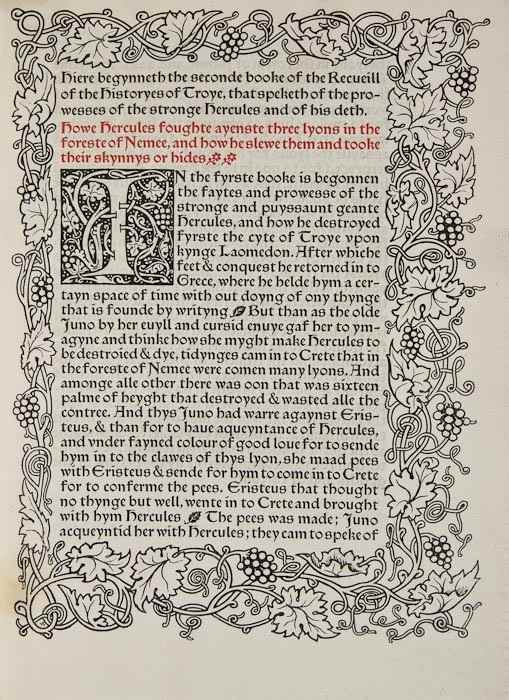 Hiere begynneth the seconde booke of the Recueill
of the Historyes of Troye, that speketh of the pro-
wesses of the stronge Hercules and of his deth.
Howe Hercules foughte ayenste three lyons in the
foreste of Nemee, and how he slewe them and tooke
their skynnys or hides
IN the fyrste booke is begonnen
the faytes and prowesse of the
stronge and puyssaunt geante
Hercules, and how he destroyed
fyrste the cyte of Troye vpon
kynge Laomedon. After whiche
feet & conquest he retorned in to
Grece, where he helde hym a cer-
tayn space of time with out doyng of ony thynge
that is founde by writyng But than as the olde
Juno by her euyll and cursid enuye gaf her to ym-
agyne and thinke how she myght make Hercules to
be destroied & dye, tidynges cam in to Crete that in
the foreste of Nemee were comen many lyons. And
amonge alle other there was oon that was sixteen
palme of heyght that destroyed & wasted alle the
contree. And thys Juno had warre agaynst Eris-
teus, & than for to haue aqueyntance of Hercules,
and vnder fayned colour of good loue for to sende
hym in to the clawes of thys lyon, she maad pees
with Eristeus & sende for hym to come in to Crete
for to conferme the pees. Eristeus that thought
no thynge but well, wente in to Crete and brought
with hym Hercules The pees was made; Juno
acqueyntid her with Hercules; they cam to speke of